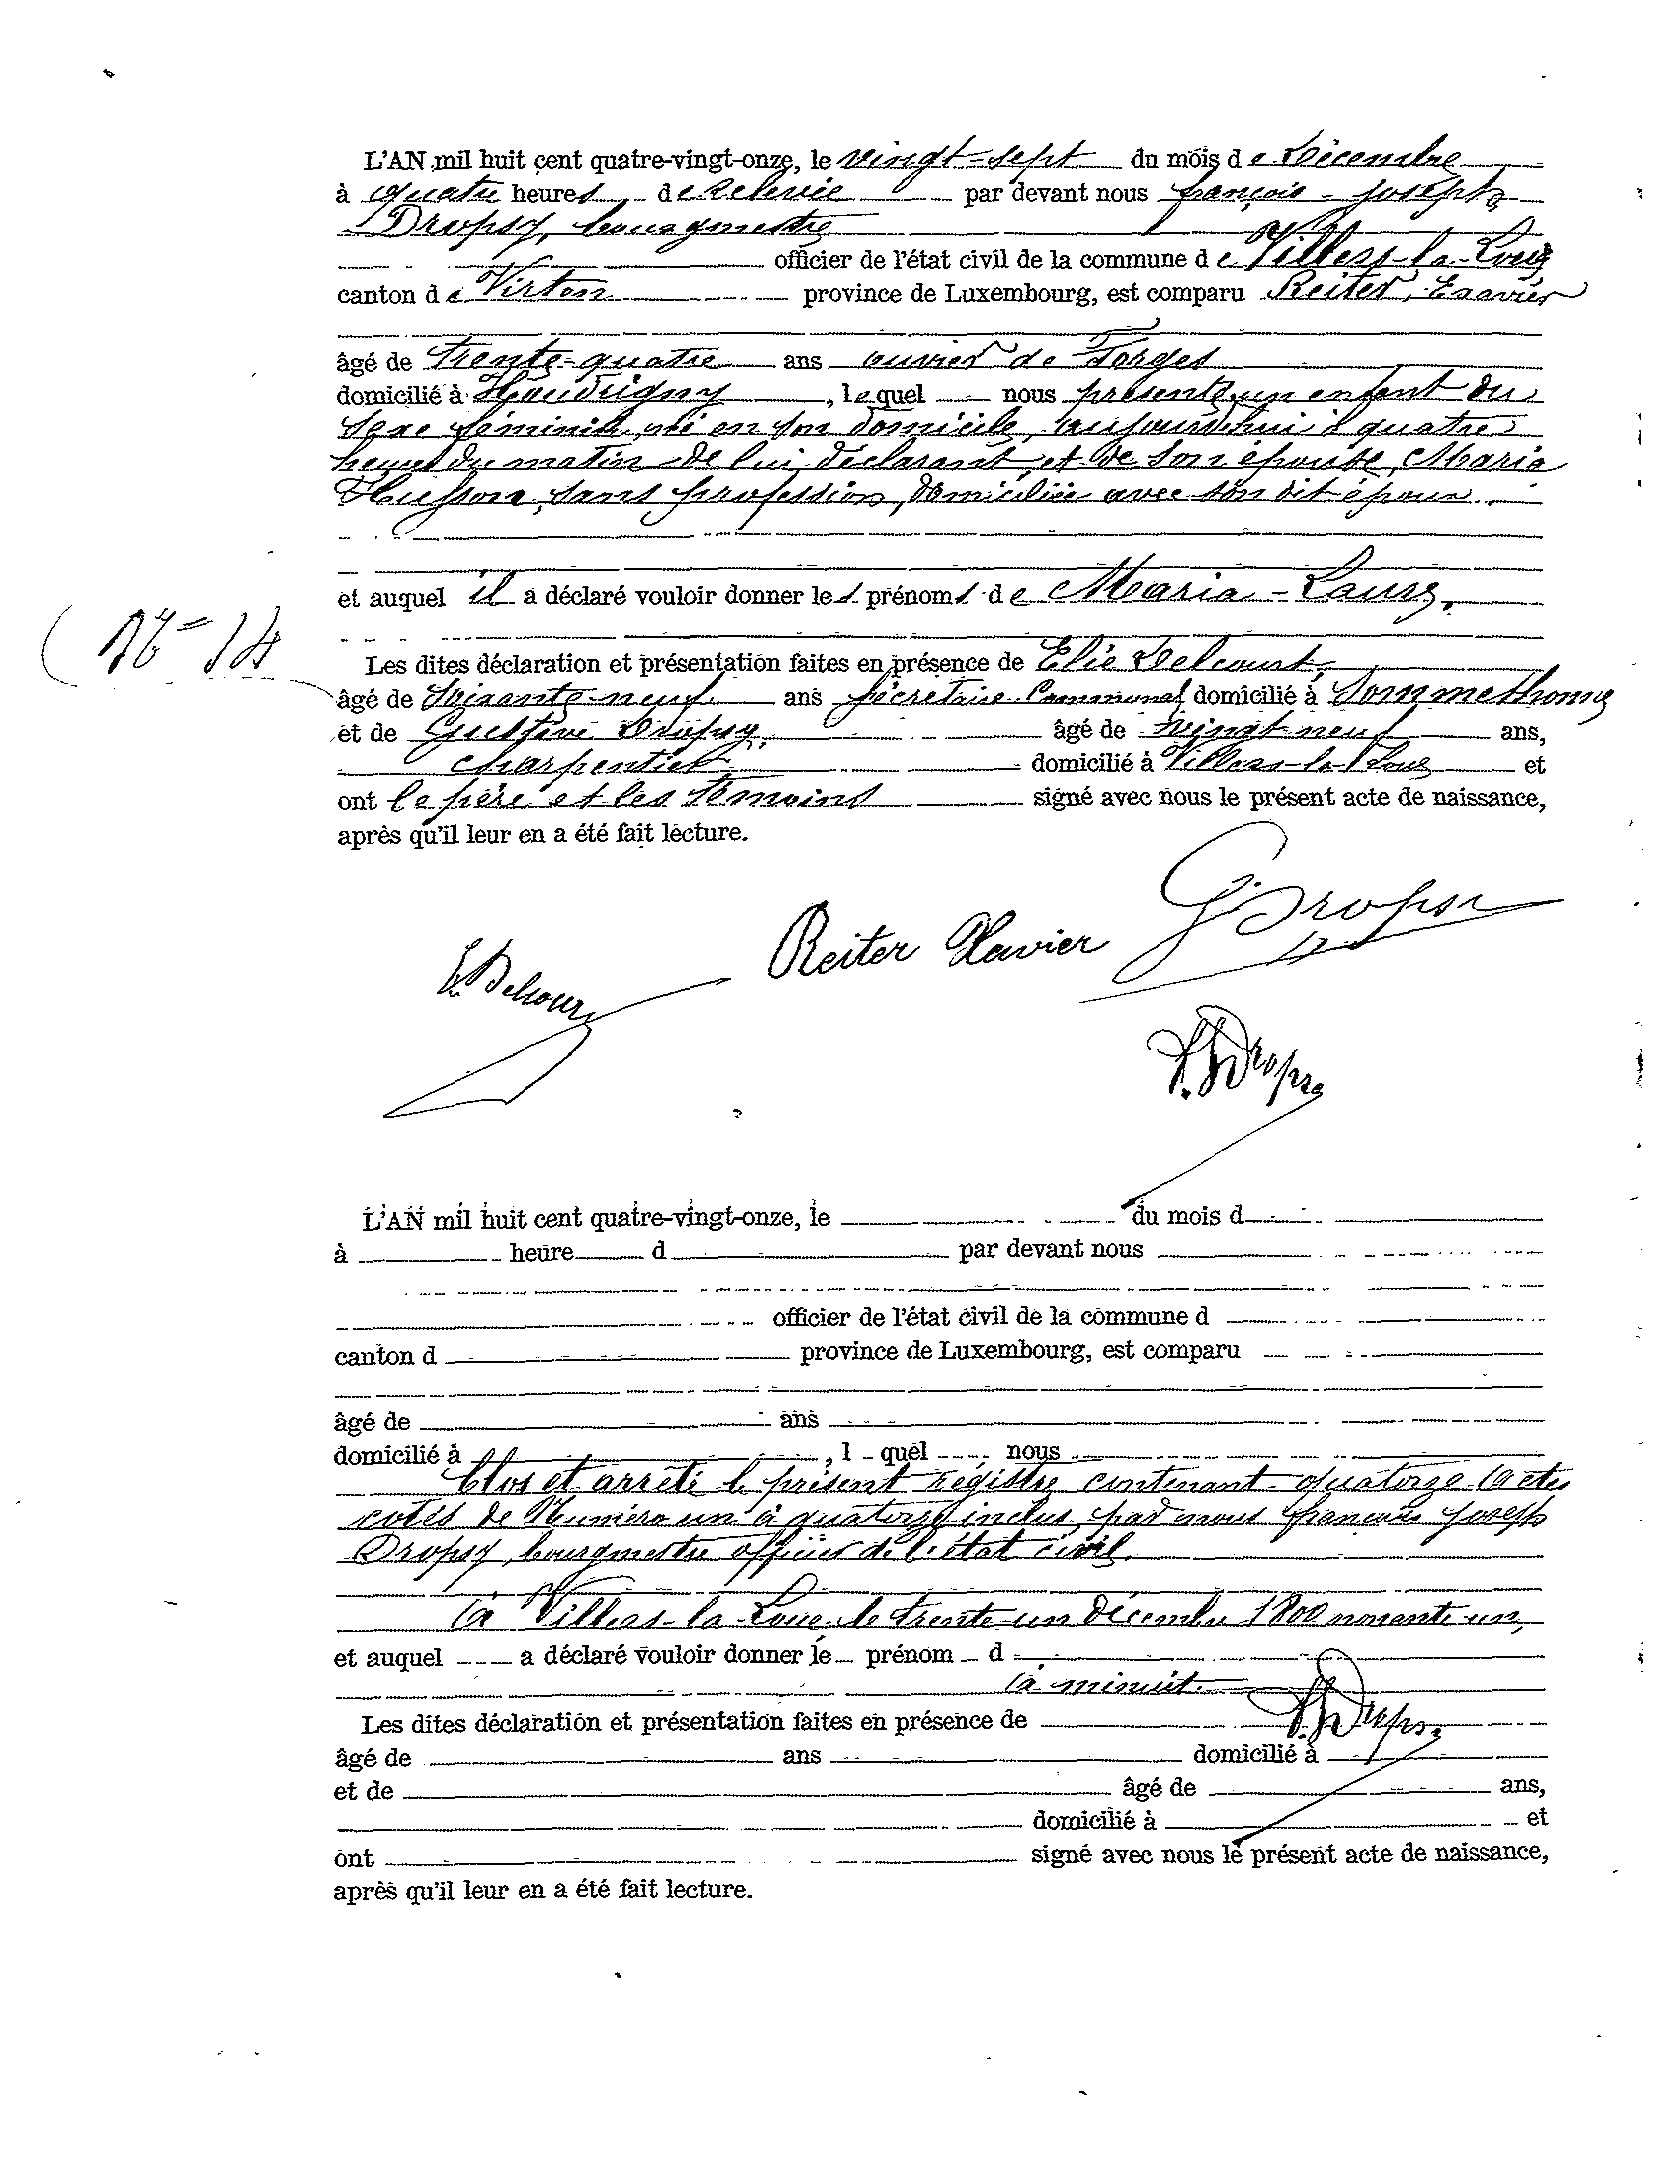 L'AN mil huit cent quatre-vingt-onze, le vingt-sept du mois de Décembre
à quatre heures de relevée par devant nous françois-joseph
Dropsy, bourgmestre
officier de l'état civil de la commune de Villers-la-Loue
canton de Virton province de Luxembourg, est comparu Reiter, Exavier
âgé de trente-quatre ans ouvrier de Forges
domicilié à Houdrigny, lequel nous présente un enfant du
sexe féminin, né en son domicile, aujourd'hui à quatre
heures du matin de lui déclarant et de son épouse, Maria
Husson, sans profession, domiciliée avec son dit époux.
et auquel il a déclaré vouloir donner les prénoms de Maria-Laure.
Nº 14
Les dites déclaration et présentation faites en présence de Elie Delcourt,
âgé de Soixante-neuf ans Sécrétaire Communal domicilié à Sommethonne
et de Gustave Dropsy, âgé de vingt neuf ans,
charpentier domicilié à Villers-la-Loue et
ont le père et les témoins signé avec nous le présent acte de naissance,
après qu'il leur en a été fait lecture.
G. Dropsy
Reiter Xavier
E. Delcourt
f. J. Dropsy
L'AN mil huit cent quatre-vingt-onze, le du mois d
à heure d par devant nous
officier de l'état civil de la commune d
canton d province de Luxembourg, est comparu
âgé de ans
domicilié à , l quel nous
Clos et arrêté le présent régistre contenant quatorze actes
cotés de Numéro un à quatorze inclus, par nous françois joseph
Dropsy, bourgmestre officier de l'état civil.
à Villers-la-Loue, le trente-un Décembre 1800 nonante-un,
et auquel a déclaré vouloir donner le prénom d
à minuit.
Les dites déclaration et présentation faites en présence de
f. J. Dropsy
âgé de ans domicilié à
et de âgé de ans,
domicilié à et
ont signé avec nous le présent acte de naissance,
après qu'il leur en a été fait lecture.